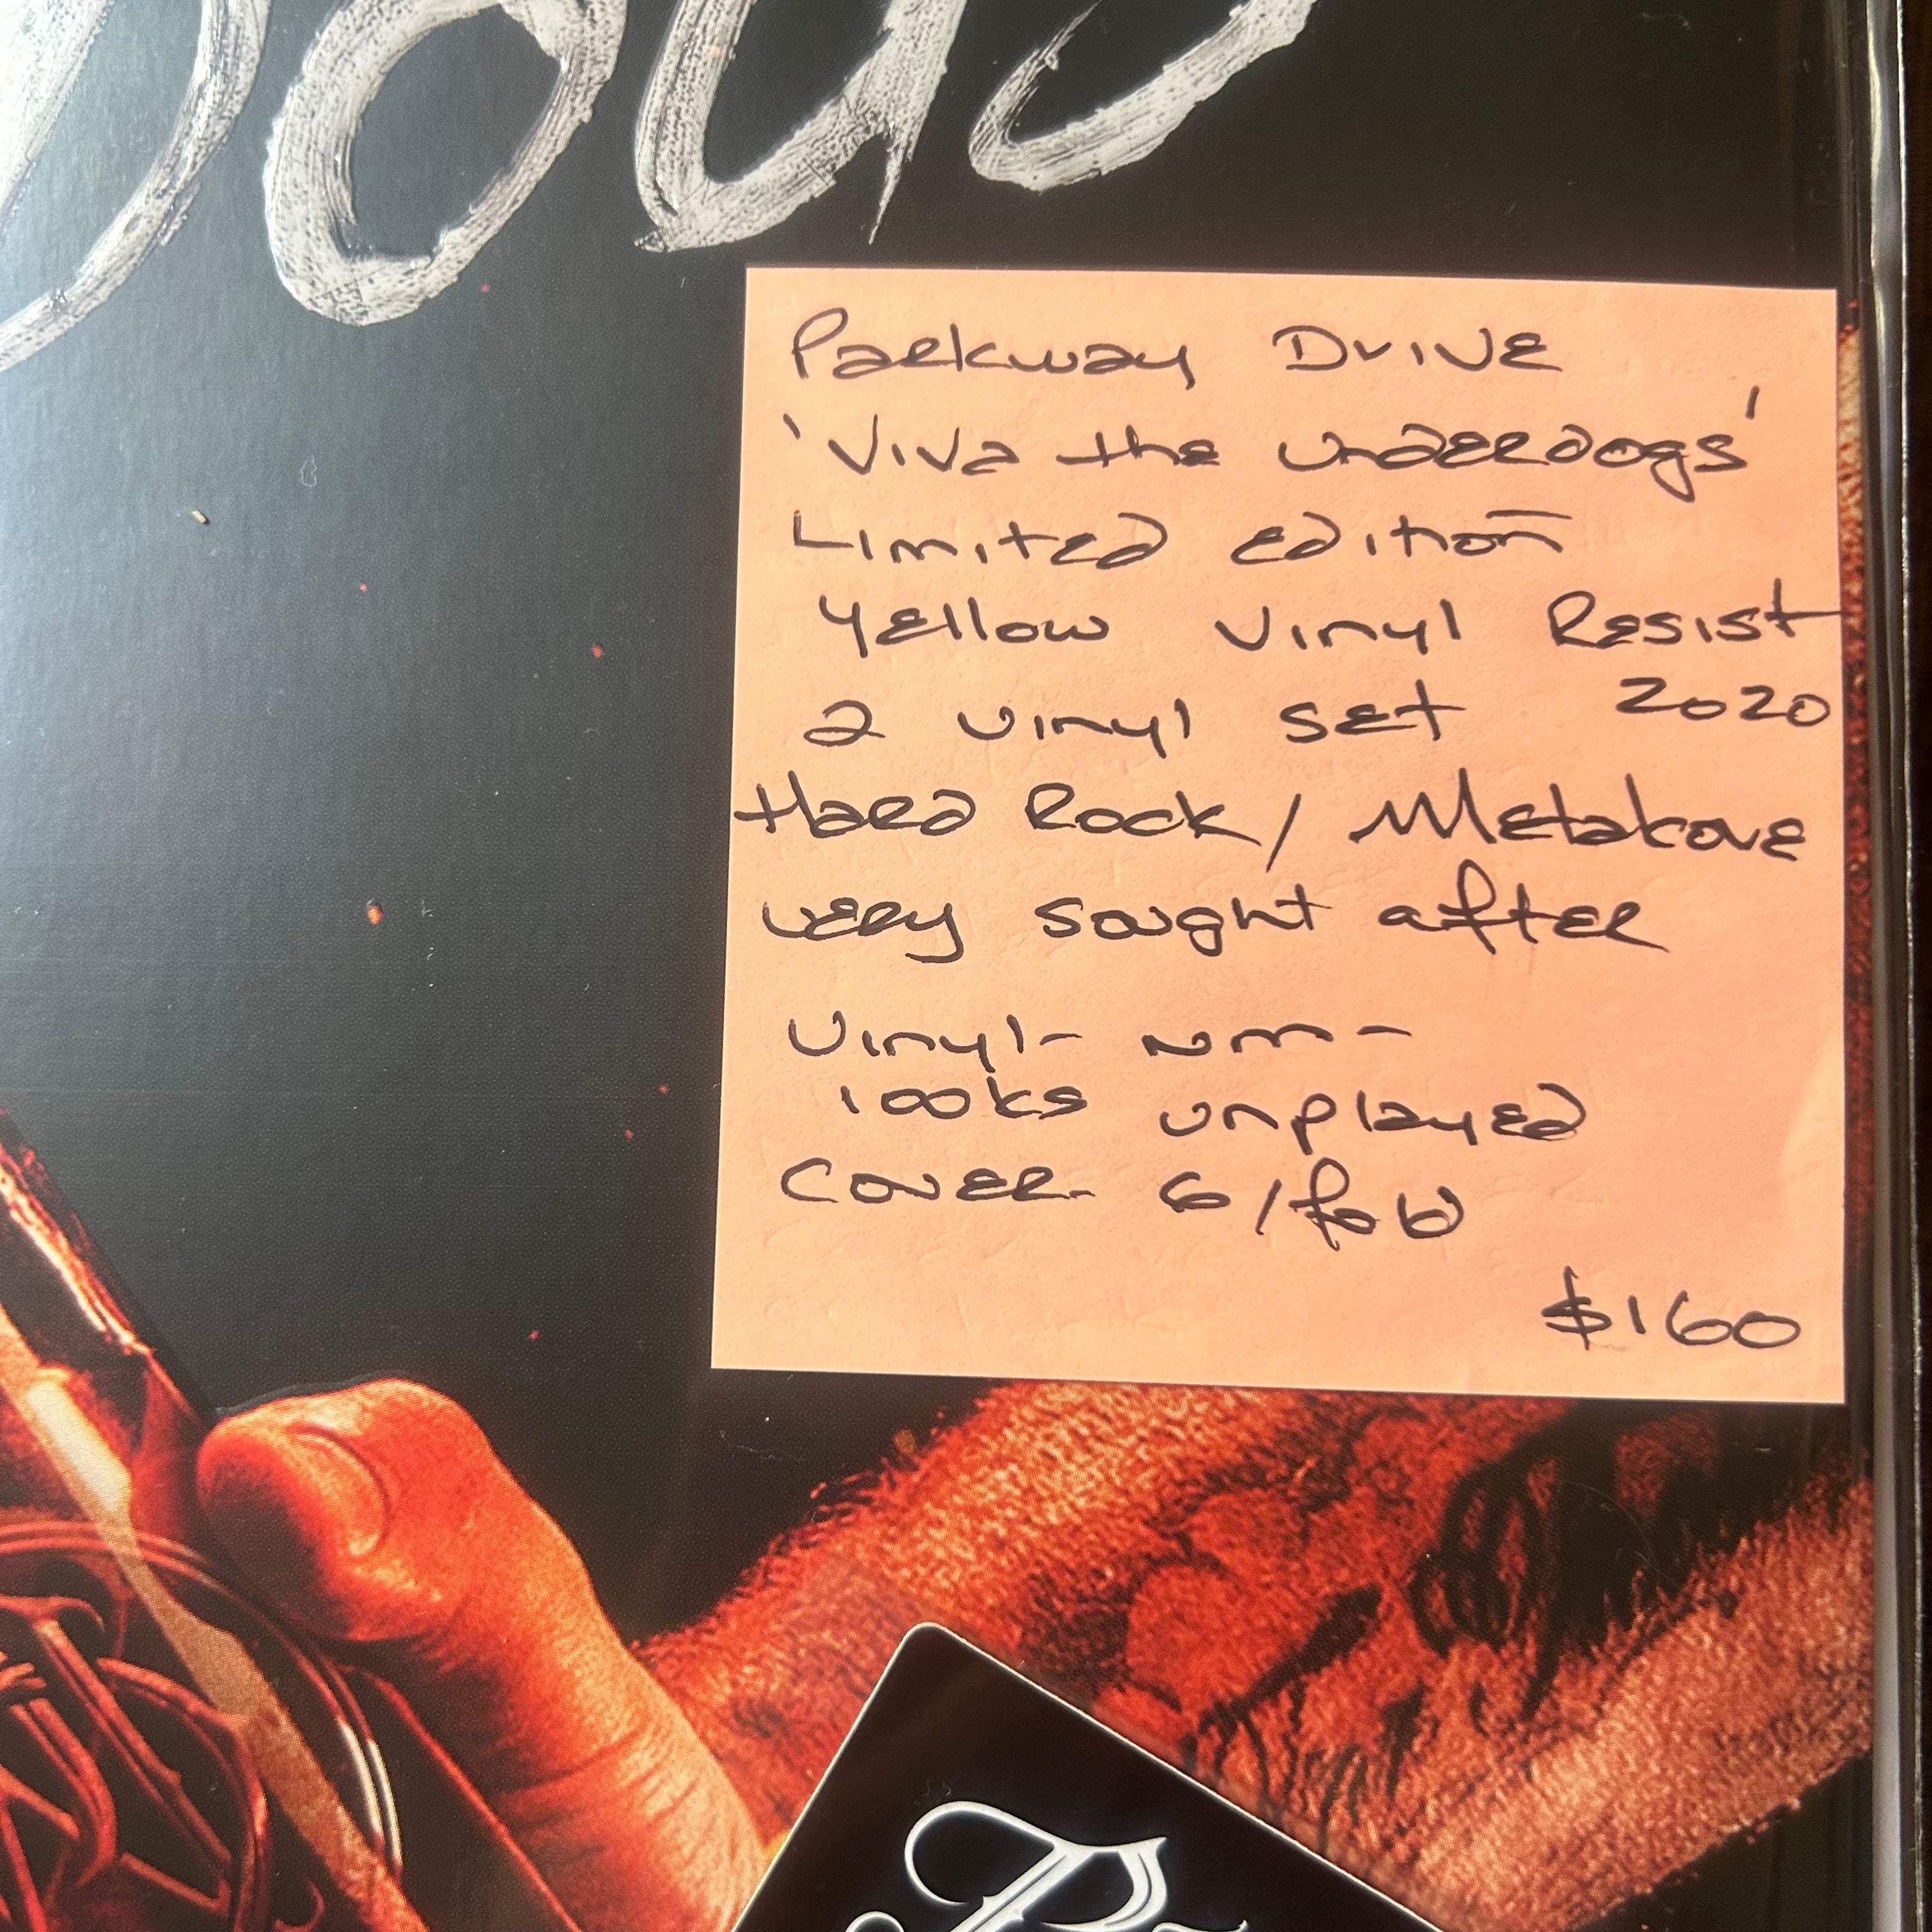 Parkway Drive
'Viva the underdogs'
Limited edition
Yellow vinyl Resist
2 vinyl set 2020
Hard Rock / Metalcore
very sought after
Vinyl- NM-
looks unplayed
Cover G/fob
$160